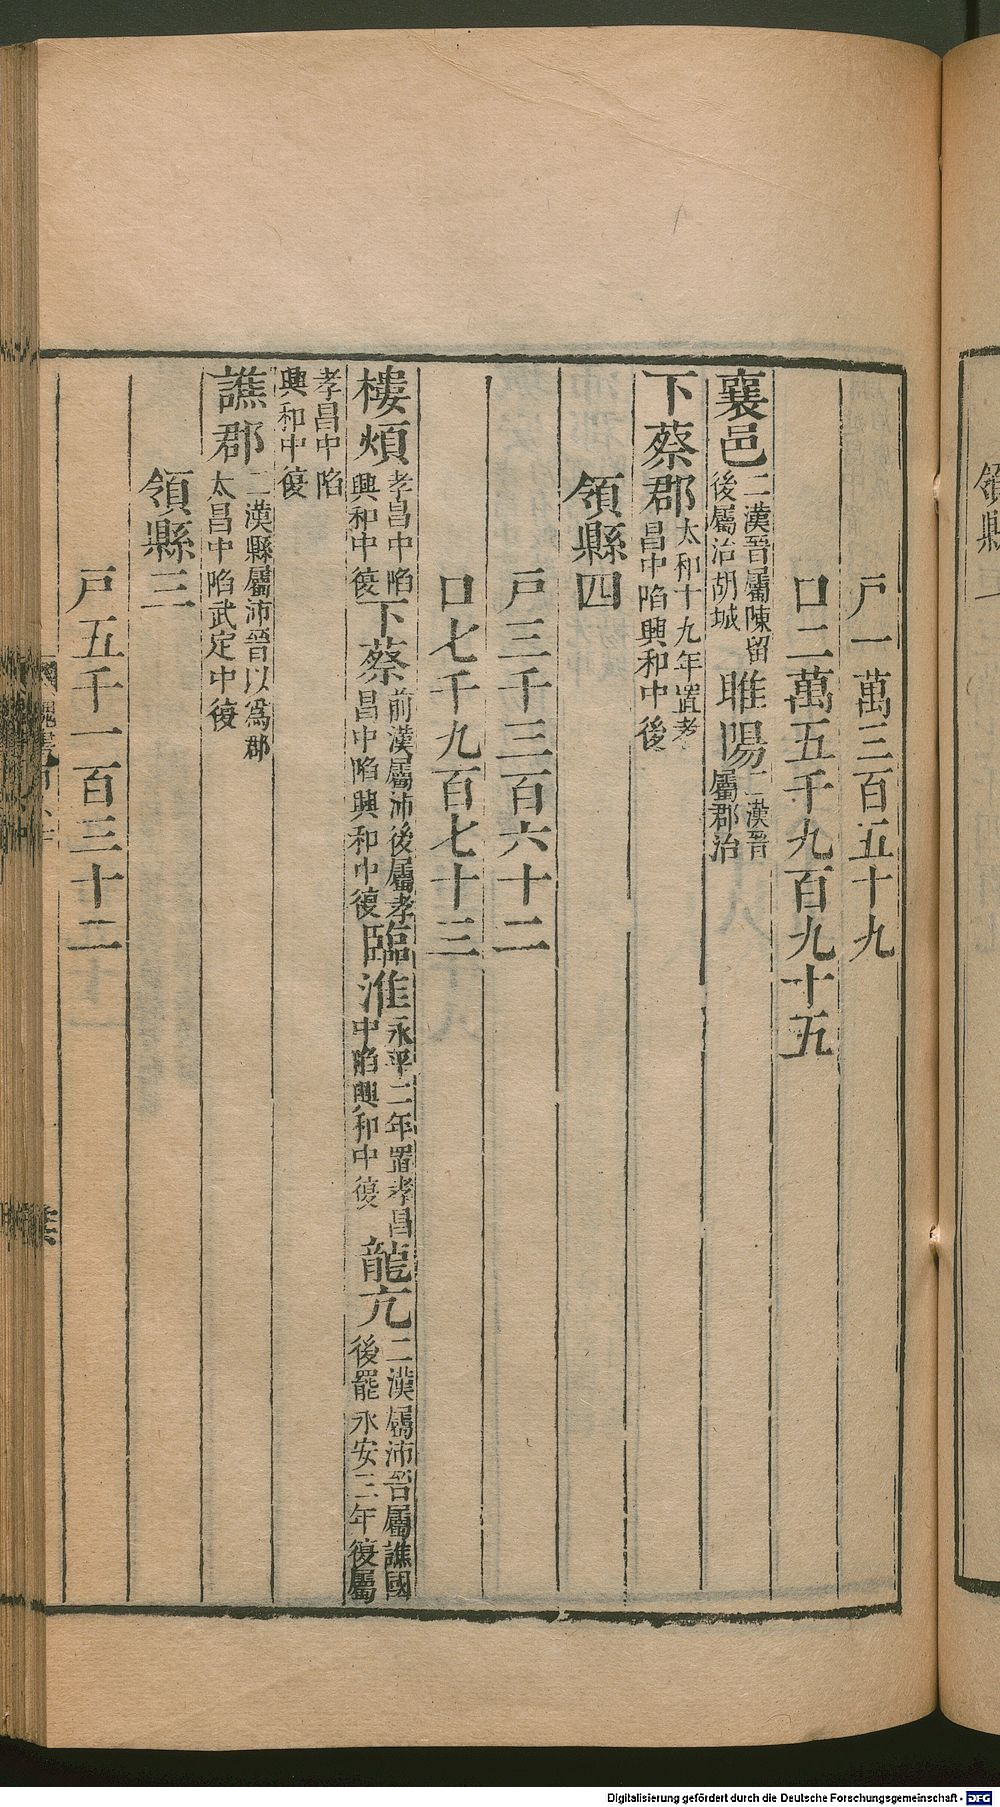 戸一萬三百五十九
口二萬五千九百九十五
襄邑二漢晉屬陳留後屬治胡城 睢陽二漢晉屬郡治
下蔡郡太和十九年置孝昌中陷興和中後
領縣四
戸三千三百六十二
口七千九百七十三
樓煩孝昌中陷興和中復 下蔡前漢屬沛後屬孝昌中陷興和中復 臨淮永平二年置孝昌中陷興和中復 龍亢二漢屬沛晉屬譙國後罷永安三年復屬
孝昌中陷興和中復
譙郡二漢縣屬沛晉以爲郡太昌中陷武定中復
領縣三
戸五千一百三十二
領縣
Digitalisierung gefördert durch die Deutsche Forschungsgemeinschaft - DFG